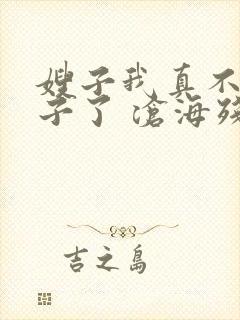 嫂子我真不
子了 滄海殘
吉之島